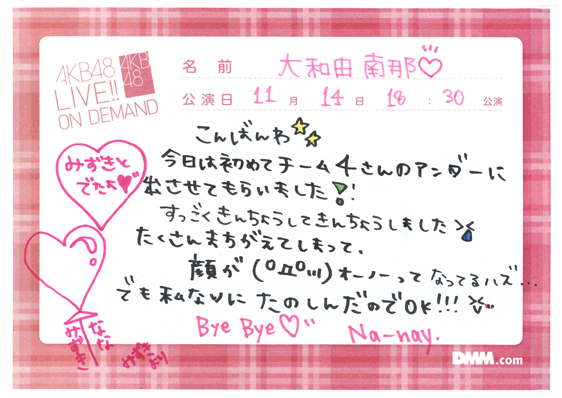 AKB48
LIVE!!
ON DEMAND
AKB
48
名前 大和田南那♡
公演日 11月14日 18:30公演
こんばんわ
今日は初めてチーム4さんのアンダーに
出させてもらいました!!
すっごくきんちょうしてきんちょうしました
たくさんまちがえてしまって、
顔が(ºдº;;;)オーノーってなってるハズ...
でも私なりにたのしんだのでOK!!!
みずきと
でたよ♥
なな
みずき
みずきより
Bye Bye♡
Na-nay.
DMM.com